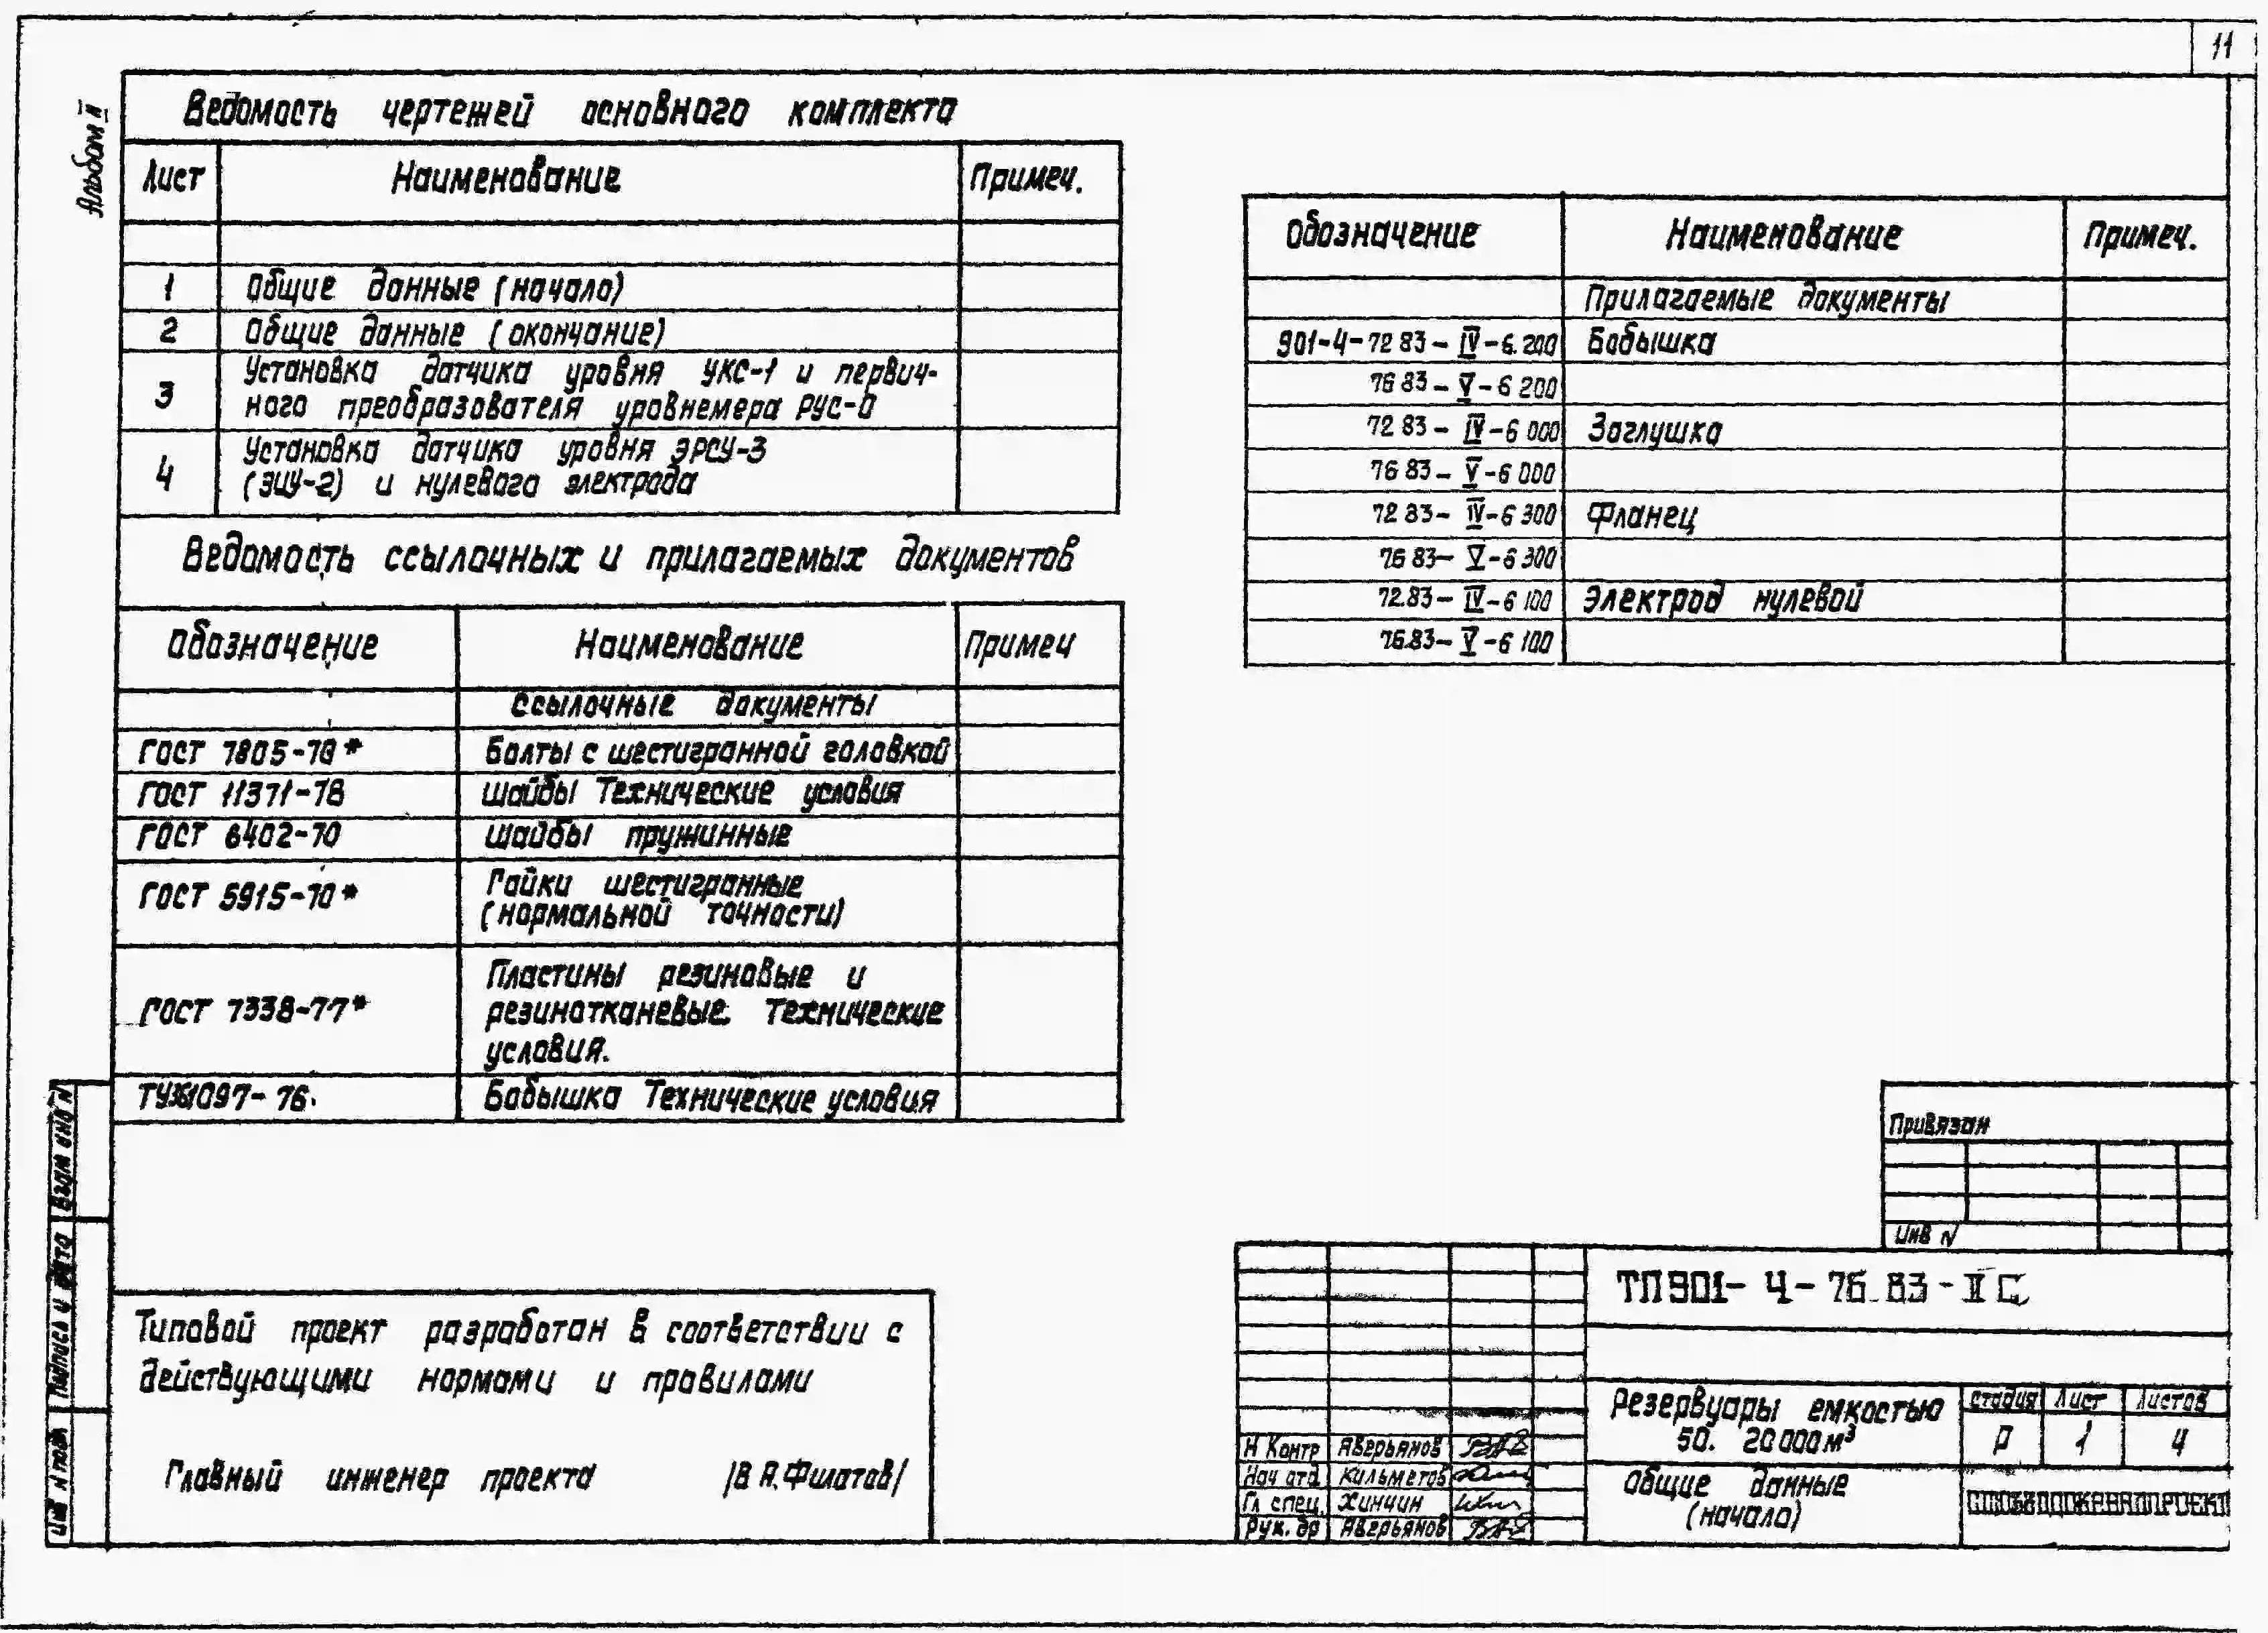 11
Альбом II
Ведомость чертежей основного комплекта
Лист Наименование Примеч.
1 Общие данные (начало)
2 Общие данные (окончание)
3 Установка датчика уровня УКС-1 и первич-
ного преобразователя уровнемера РУС-0
4 Установка датчика уровня ЭРСУ-3
(ЭИУ-2) и нулевого электрода
Ведомость ссылочных и прилагаемых документов
Обозначение Наименование Примеч
Ссылочные документы
ГОСТ 7805-70* Болты с шестигранной головкой
ГОСТ 11371-78 Шайбы Технические условия
ГОСТ 6402-70 Шайбы пружинные
ГОСТ 5915-70* Гайки шестигранные
(нормальной точности)
ГОСТ 7338-77* Пластины резиновые и
резинотканевые. Технические
условия.
1097-76. Бобышка Технические условия
Обозначение Наименование Примеч.
Прилагаемые документы
901-4-72 83-IV-6.200 Бобышка
76 83-V-6 200
72 83-IV-6 000 Заглушка
76 83-V-6 000
72 83-IV-6 300 Фланец
76 83-V-6 300
72.83-IV-6 100 Электрод нулевой
76.83-V-6 100
Типовой проект разработан в соответствии с
действующими нормами и правилами
Главный инженер проекта /В Я.Филатов/
Инв N подл Подпись и дата Взам инв N
Привязан
Инв N
ТП 901-4-76.83-II С
Резервуары емкостью
50. 20000м³
Стадия Лист Листов
Р 1 4
Общие данные
(начало)
СОЮЗВОДОКАНАЛПРОЕКТ
Н Контр Аверьянов
Нач отд. Кильметов
Гл спец. Хинчин
Рук. гр Аверьянов